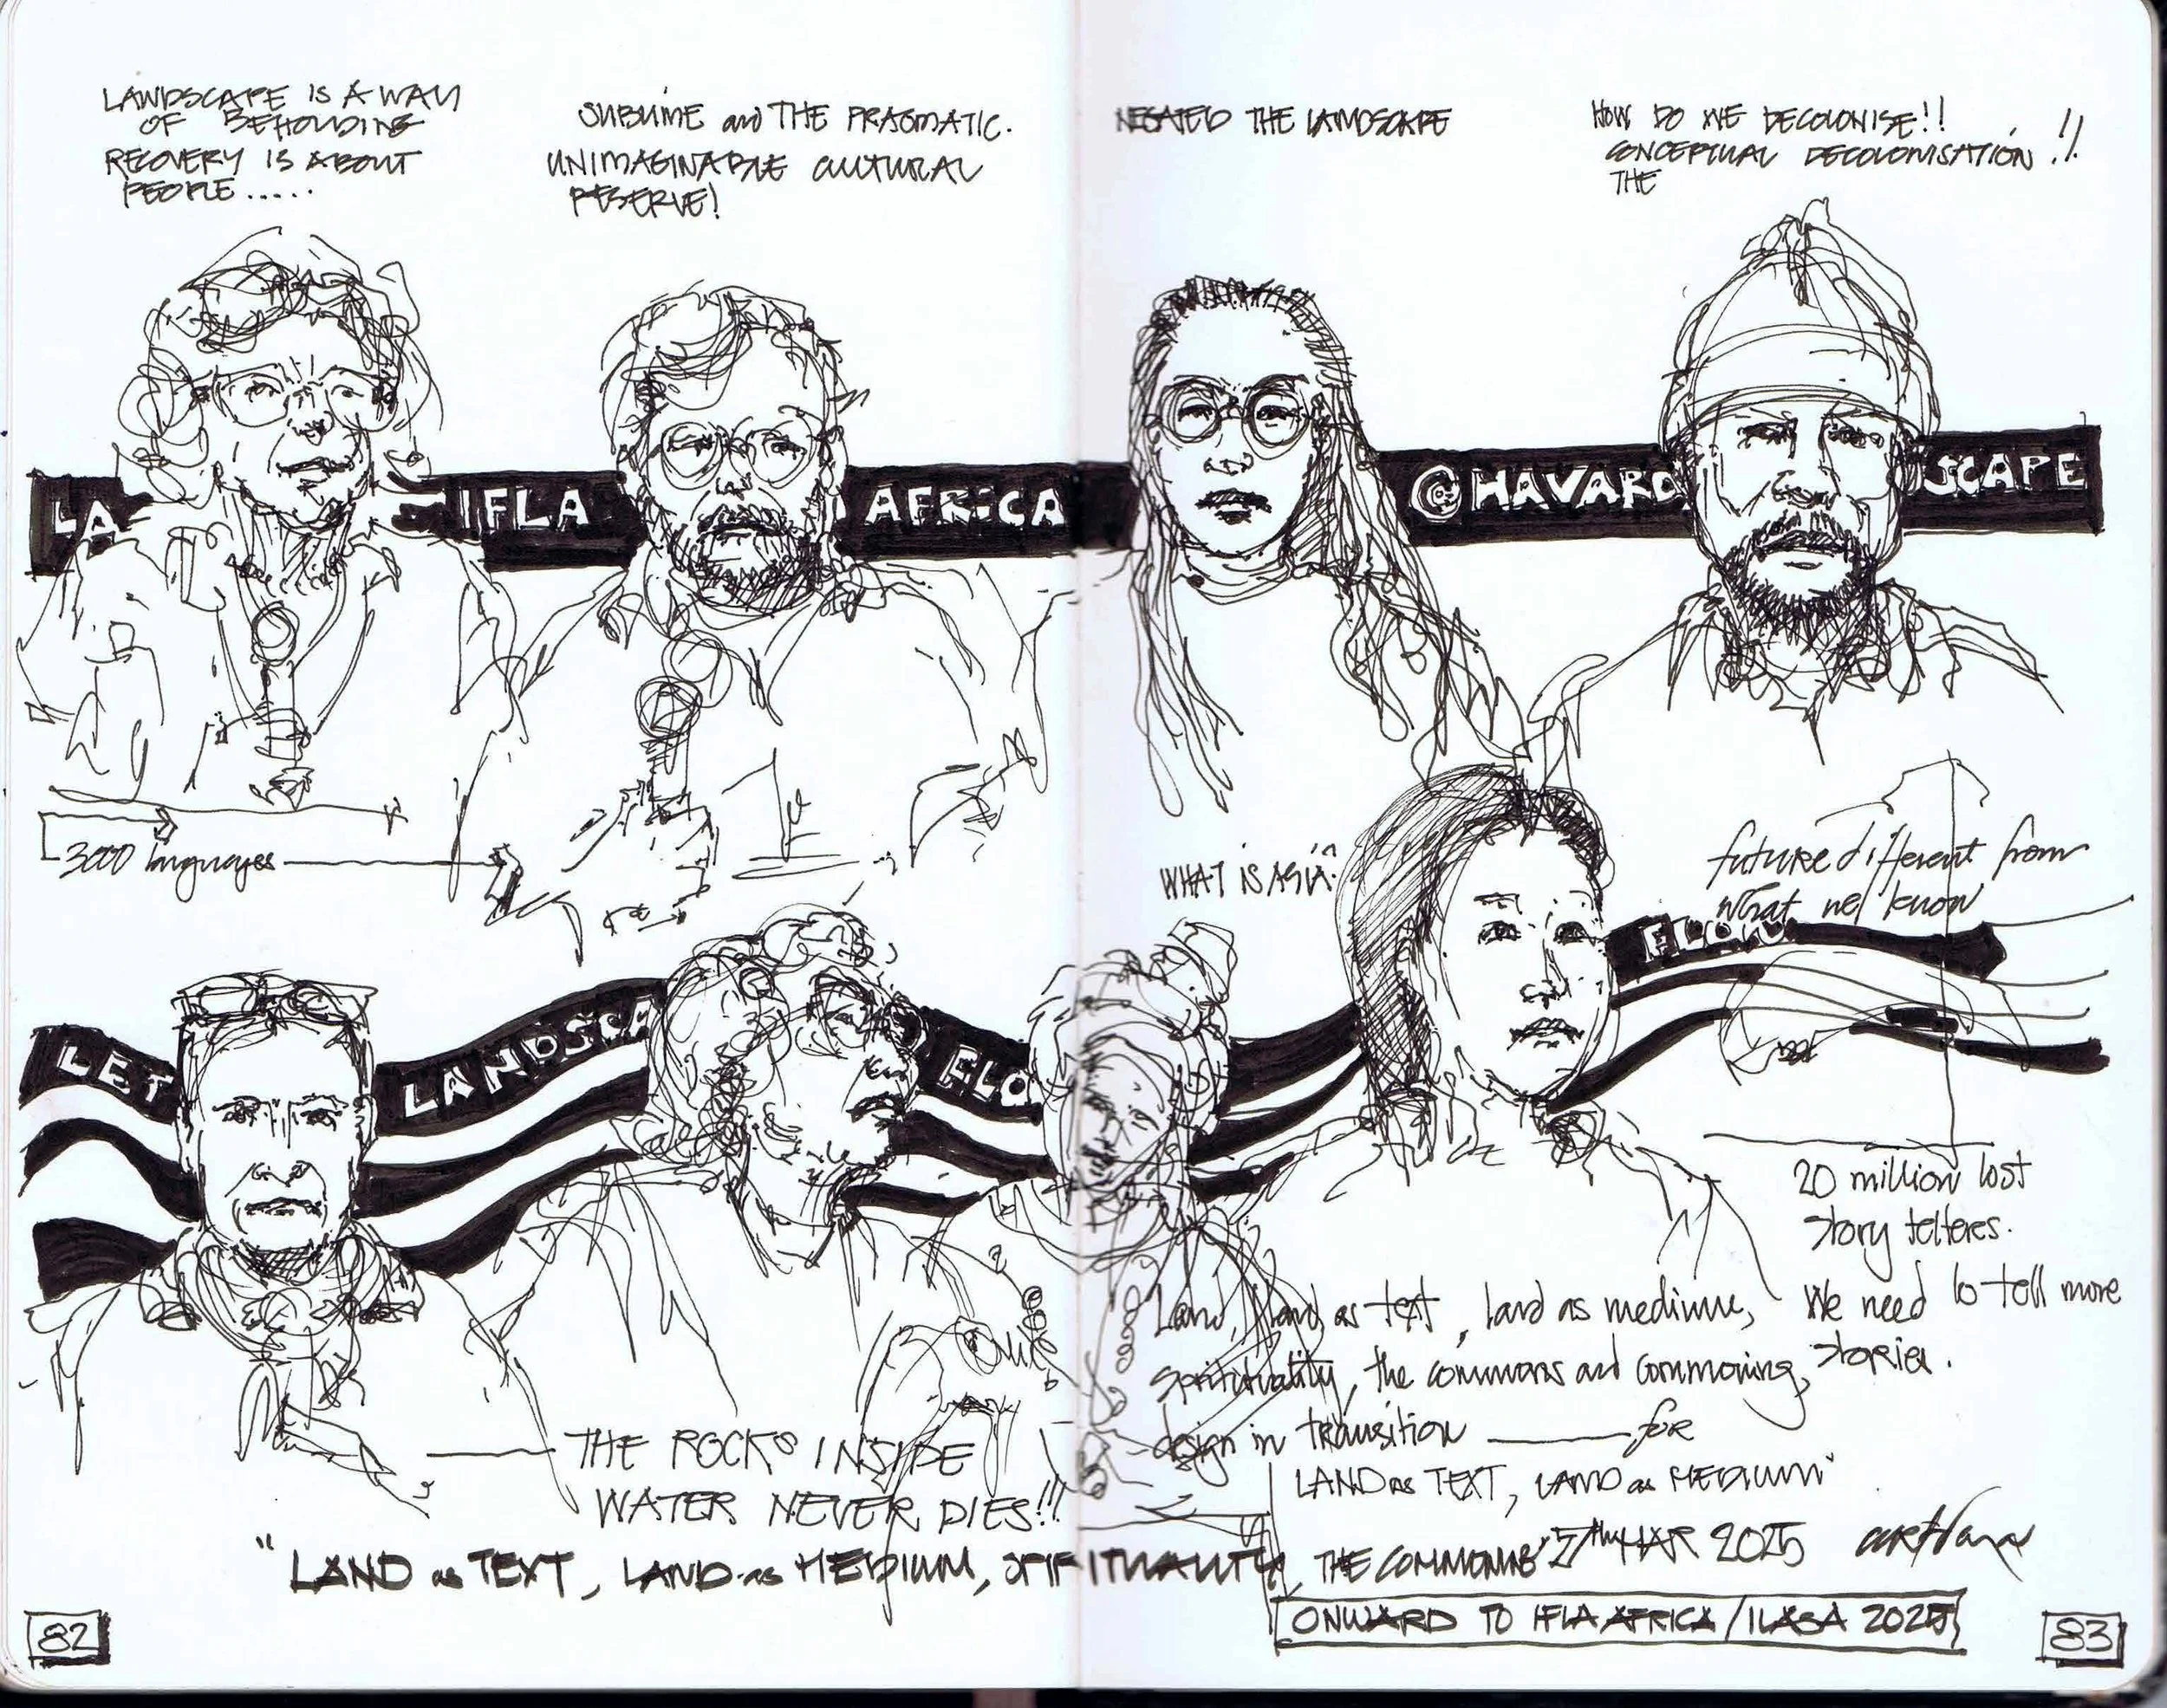 LANDSCAPE IS A WAY
OF BEHOLDING
RECOVERY IS ABOUT
PEOPLE.....
SUBLIME and THE PRAGMATIC.
UNIMAGINABLE CULTURAL
RESERVE!
NEGATED THE LANDSCAPE
HOW DO WE DECOLONISE!!
CONCEPTUAL DECOLONISATION!!
THE
LA IFLA AFRICA @HAVARD SCAPE
3000 languages
WHAT IS ASIA?
future different from
what we know
LET LANDSCA FLO FLOW
20 million lost
story telleres.
We need to tell more
stories.
Land, land as text, land as medium,
spirituality, the commons and commoning,
design in transition for
LAND as TEXT, LAND as MEDIUM"
THE ROCKS INSIDE
WATER NEVER DIES!!!
"LAND as TEXT, LAND as MEDIUM, SPIRITUALITY, THE COMMONING"
7th MAR 2025
ONWARD TO IFLA AFRICA/ILASA 2025
82
83